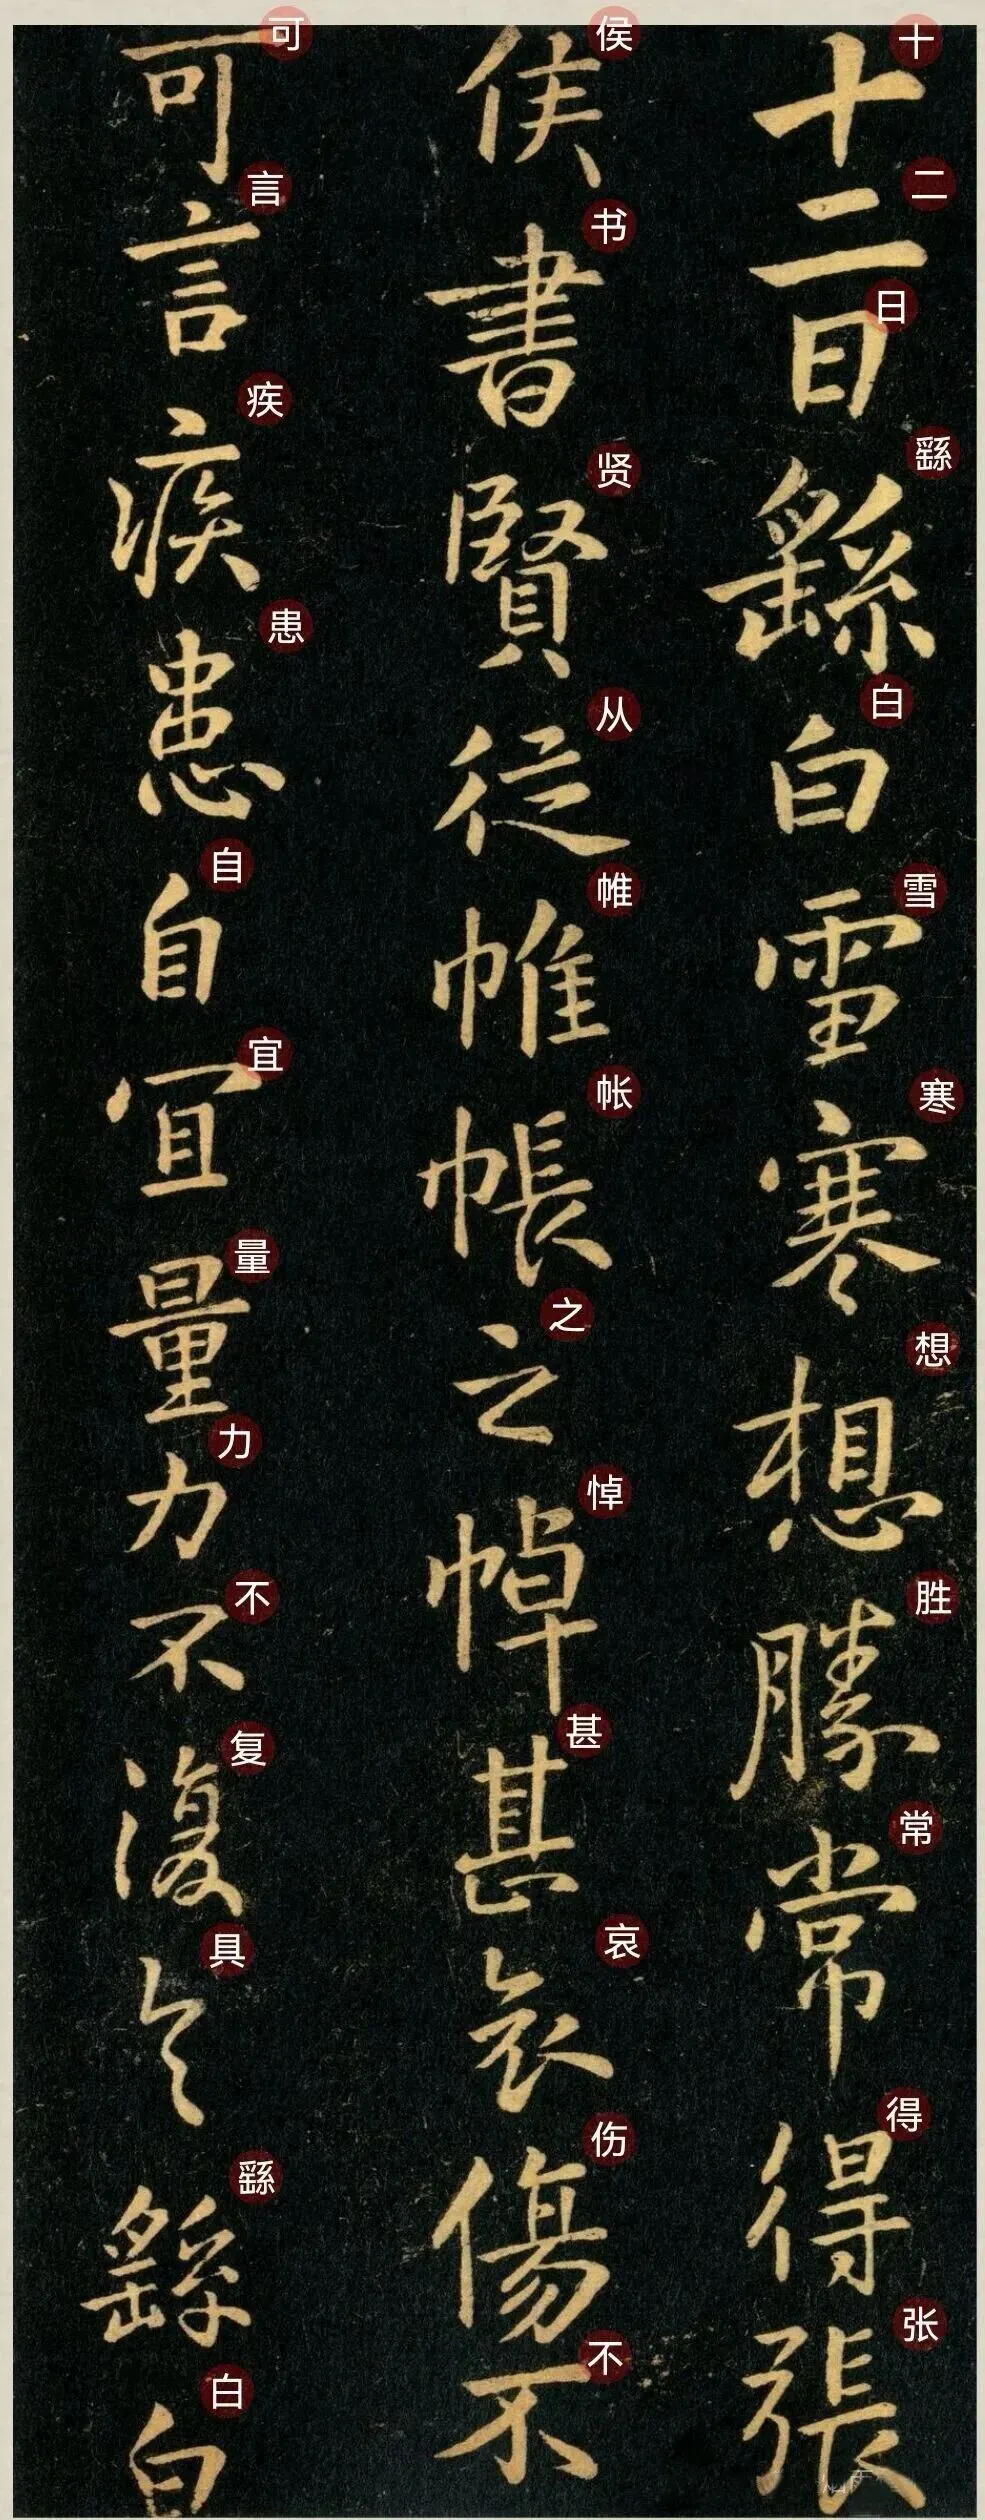 十二日繇白雪寒想勝常得張
侯書賢從帷帳之悼甚哀傷不
可言疾患自宜量力不復具繇白
十二日繇白雪寒想胜常得张
侯书贤从帷帐之悼甚哀伤不
可言疾患自宜量力不复具繇白